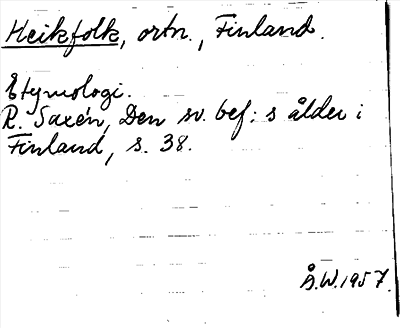 Heikfolk, ortn., Finland.
Etymologi.
R. Saxén, Den sv. bef:s ålder i
Finland, s. 38.
Å.W. 1957.